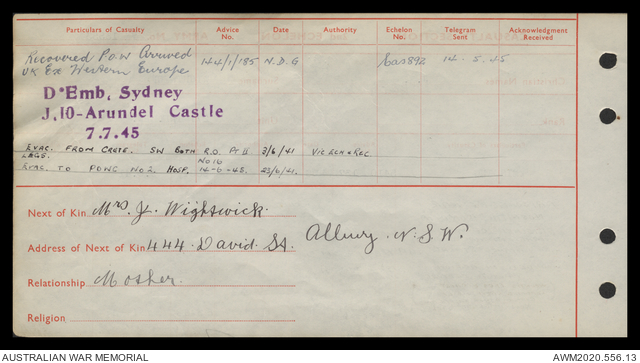 Particulars of Casualty Advice No. Date Authority Echelon No. Telegram Sent Acknowledgment Received
Recovered P.O.W Arrived 144/1/185 N.D.G Cas 892 14.5.45
UK Ex Western Europe
D'Emb, Sydney
J,10-Arundel Castle
7.7.45
EVAC. FROM CRETE. SW BOTH R.O. Pt II 2/6/41 VIC ECH & REC
LEGS. No 16
EVAC. TO POWC No 2. HOSP. 14-6-45. 23/6/41.
Next of Kin Mrs J. Wightwick.
Address of Next of Kin 444 David St. Albury. N.S.W.
Relationship Mother.
Religion
AUSTRALIAN WAR MEMORIAL AWM2020.556.13